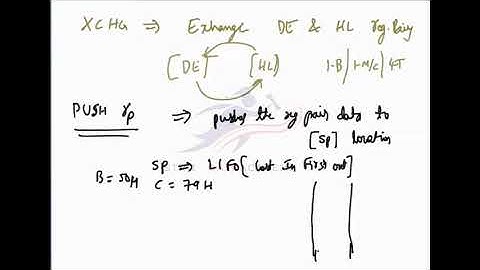 XCHG ⇒ Exchange DE & HL reg. Pair
[DE] [HL] 1-B | 1-M/C | 4T
PUSH rp ⇒ pushes the reg pair data to
[SP] location
SP ⇒ LIFO [Last In First Out]
B = 50H C = 79H